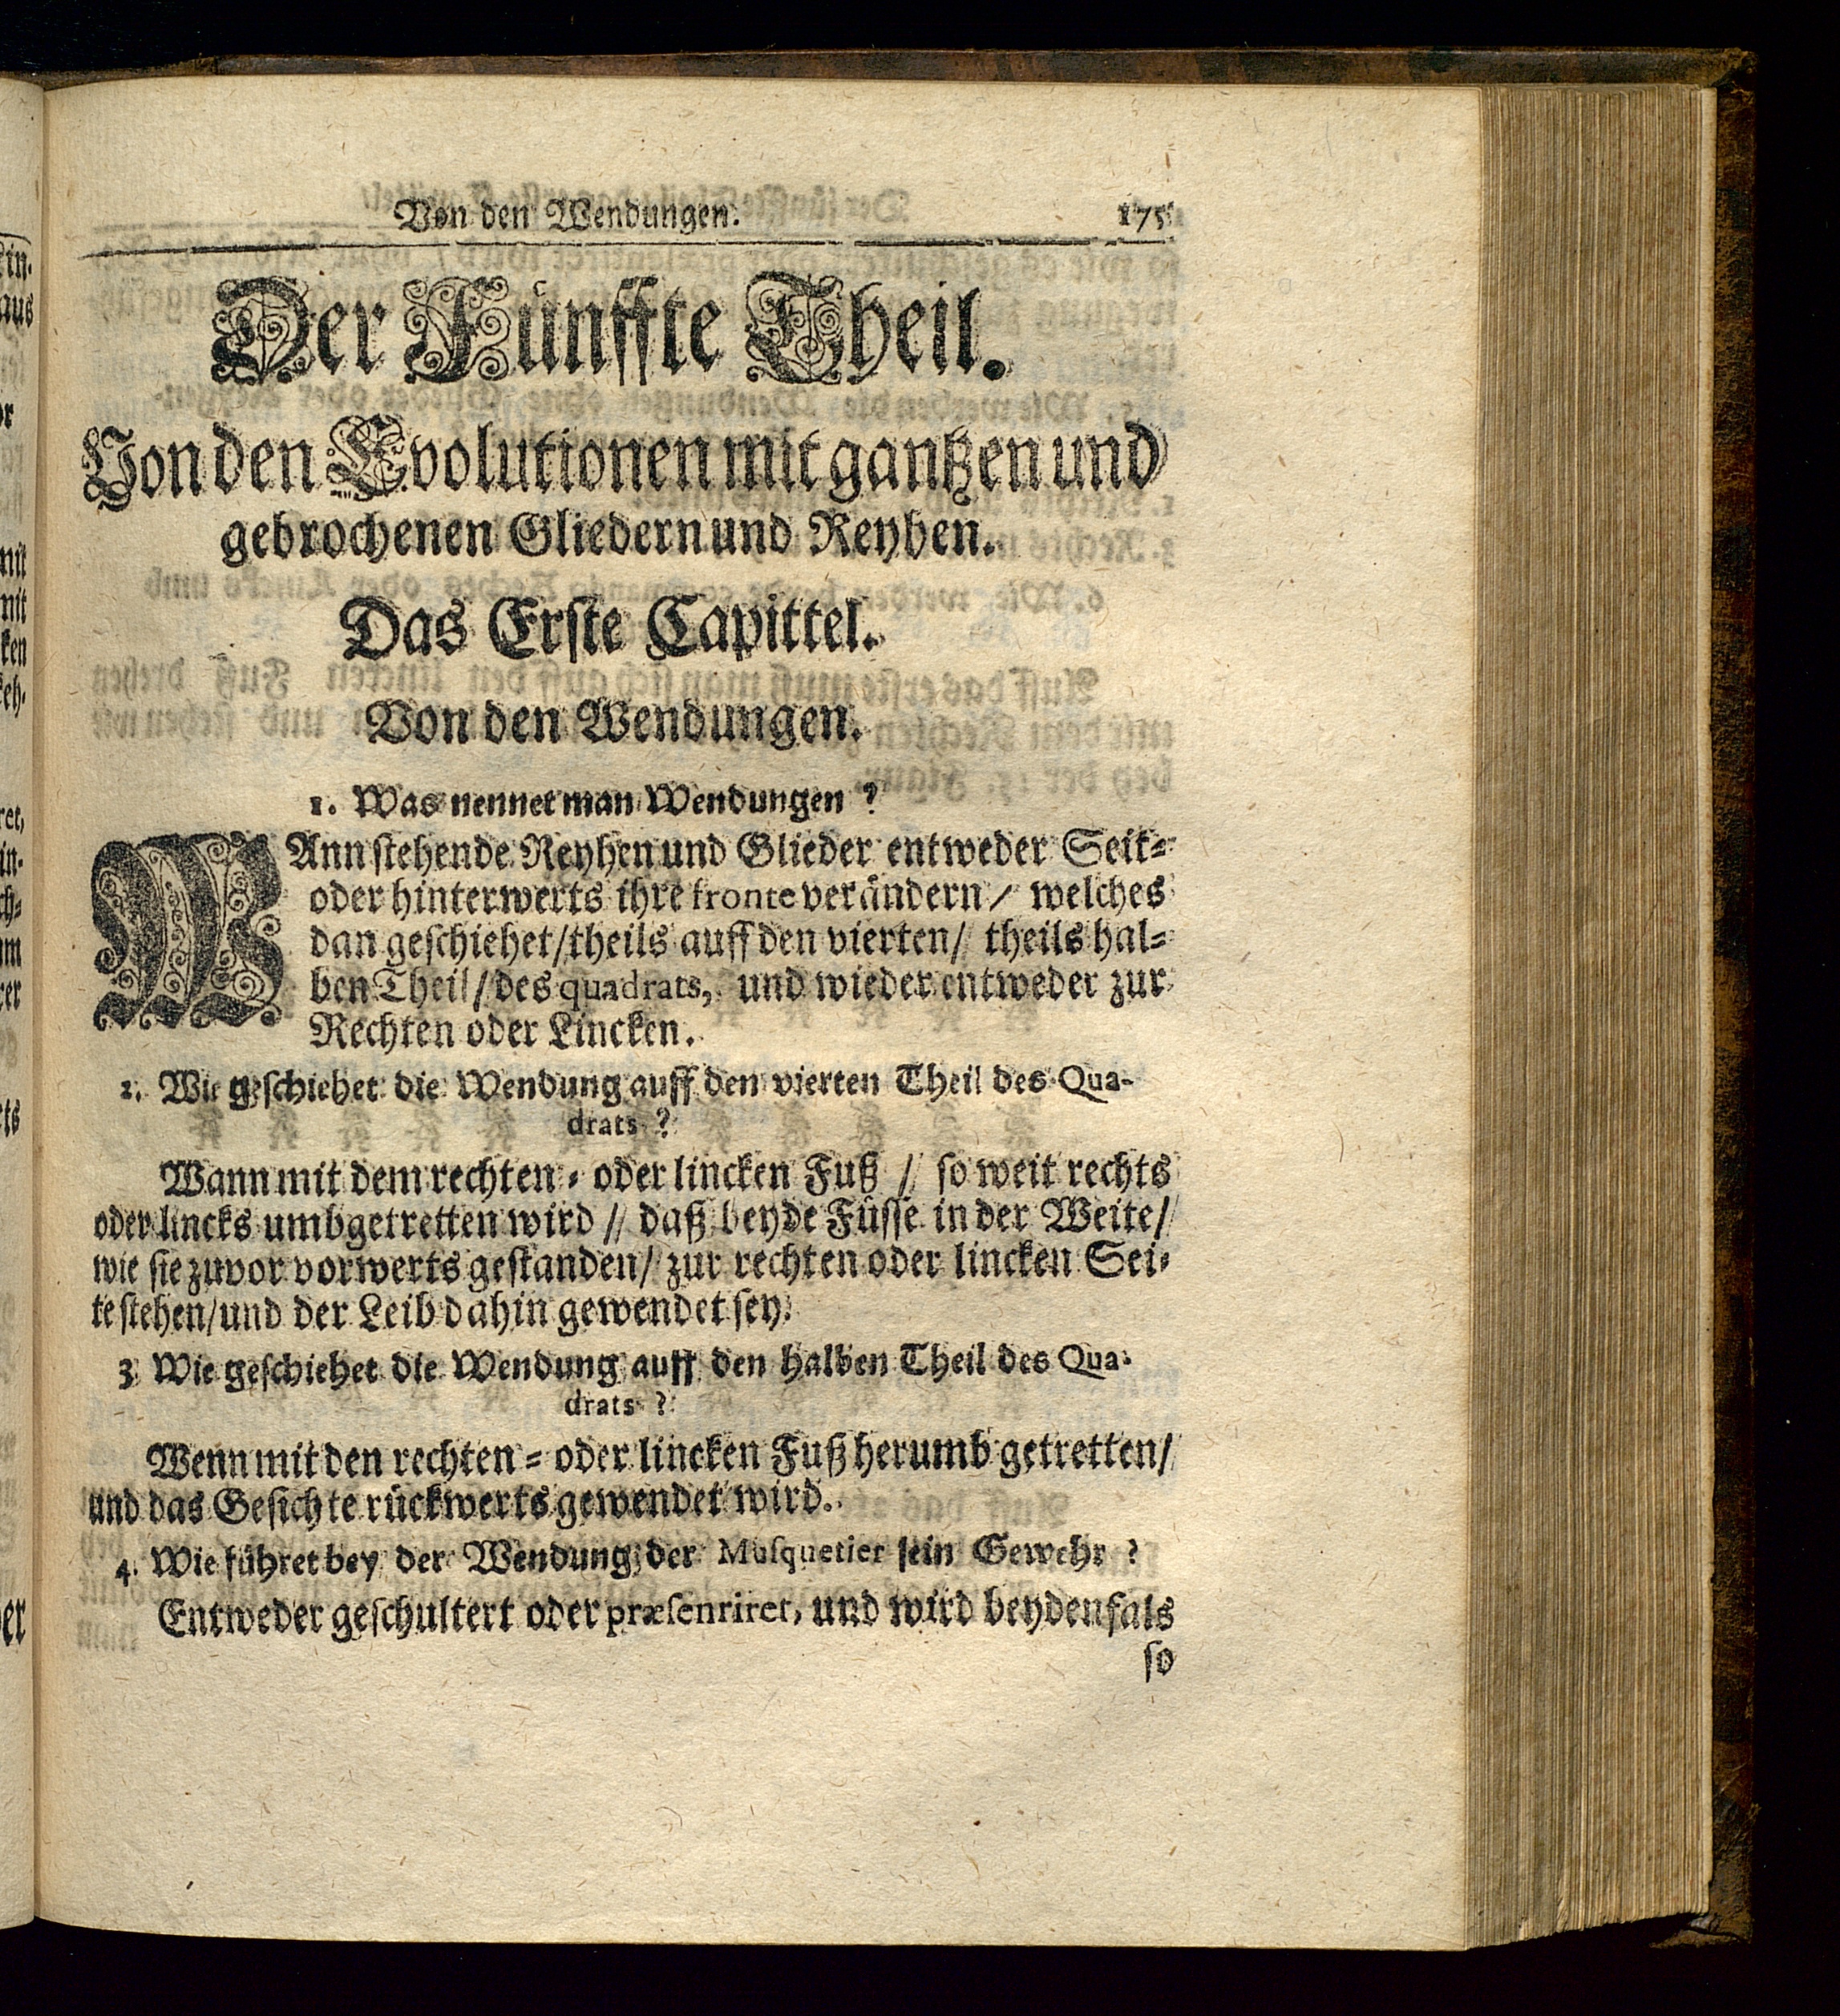 Von den Wendungen. 175
Der Fünffte Theil.
Von den Evolutionen mit gantzen und
gebrochenen Gliedern und Reyhen.
Das Erste Capittel.
Von den Wendungen.
1. Was nennet man Wendungen?
WAnn stehende Reyhen und Glieder entweder Seit-
oder hinterwerts ihre fronte verändern / welches
dan geschiehet / theils auff den vierten / theils hal-
ben Theil / des quadrats, und wieder entweder zur
Rechten oder Lincken.
2. Wie geschiehet die Wendung auff den vierten Theil des Qua-
drats?
Wann mit dem rechten- oder lincken Fuß / so weit rechts
oder lincks umbgetretten wird / daß beyde Füsse in der Weite /
wie sie zuvor vorwerts gestanden / zur rechten oder lincken Sei-
te stehen / und der Leib dahin gewendet sey.
3 Wie geschiehet die Wendung auff den halben Theil des Qua-
drats?
Wenn mit den rechten- oder lincken Fuß herumb getretten /
und das Gesichte rückwerts gewendet wird.
4. Wie führet bey der Wendung der Musquetier sein Gewehr?
Entweder geschultert oder præsentiret, und wird beydenfals
so